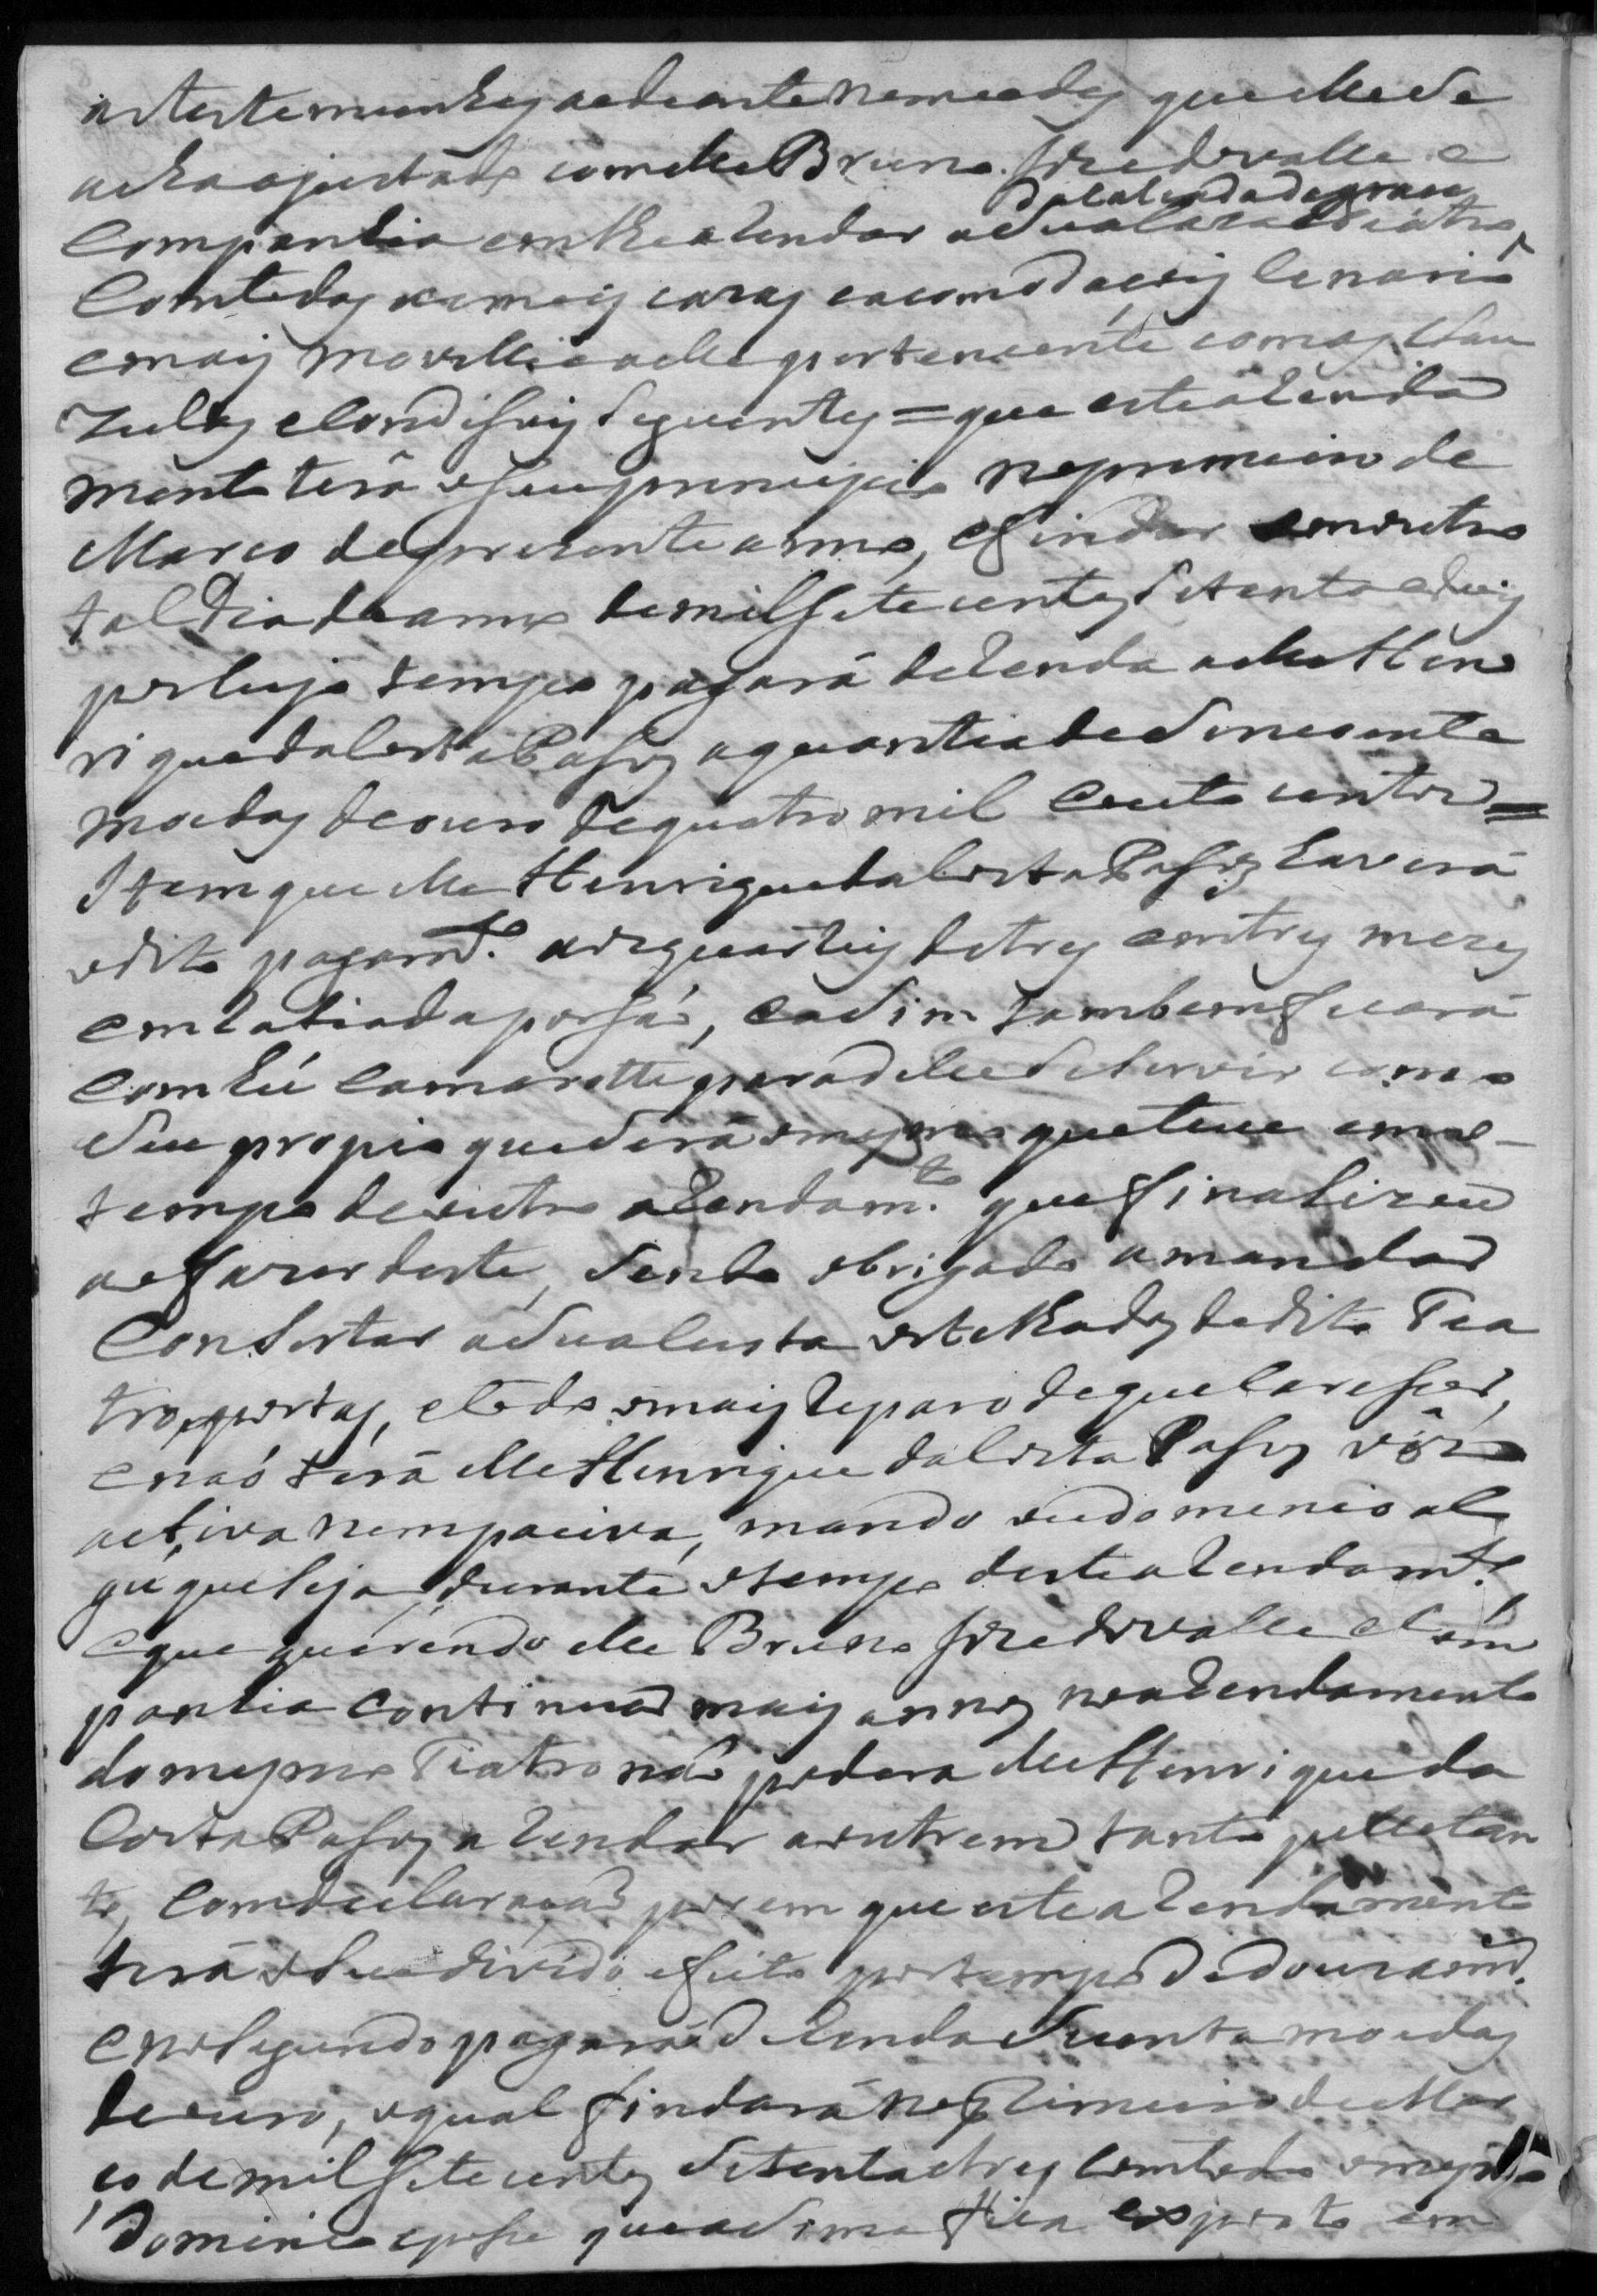 as testemunhas ao deante nomeadas que elle se
acha ajustado com elle Bruno Jozé do valle e
Companhia em lhe aRendar a sua Caza de Teatro
da Calsada da grasa
Com todas as mais cazas e acomodacoiz Cenario
e mais movillia a elle pertencente com as Clau
zulas e Condisoiz seguentes = que este aRenda
mento terá o seu principio no primeiro de
Marco do prezente anno, e findar em outro
tal dia do anno de mil sete centos setenta e doiz
por cujo tempo pagará de Renda a elle Hen
rique da Costa Pasos a quantia de sincoenta
moedas de ouro de quatro mil e outo centos =
Item que elle Henrique da Costa Pasos haverá
o dito pagamto. aos quarteis de tres em tres mezes
em Ratiada porsaó, e asim tambem ficará
Com hú Camarotte para delle se servir como
seu propio que será o mesmo que teve em o
tempo de outro aRendamto. que finalizou
ao fazer deste, sendo obrigado a mandar
Consertar a sua custa os telhados do dito Tea
tro, portas, e todo o mais Reparo de que Caresser,
e naó terá elle Henrique da Costa Pasos vôz
activa nem paciva, mando ou domenio al
gú que seja, durante o tempo deste aRendamto.
e que querendo elle Bruno Jozé do valle e Com
panhia Continuar mais annos no aRendamento
do mesmo Teatro naó podera elle Henrique da
Costa Pasos aRendar a outrem tanto pello tan
to, Com declaracaó porem que este aRendamento
terá o seu divido efeito por tempo de dous annos
e no segundo pagará de Renda secenta moedas
de ouro, o qual findará no primeiro de Mar
co de mil sete centos setenta e tres Com todo o mesmo
Dominio e pose que asima fica exposto em